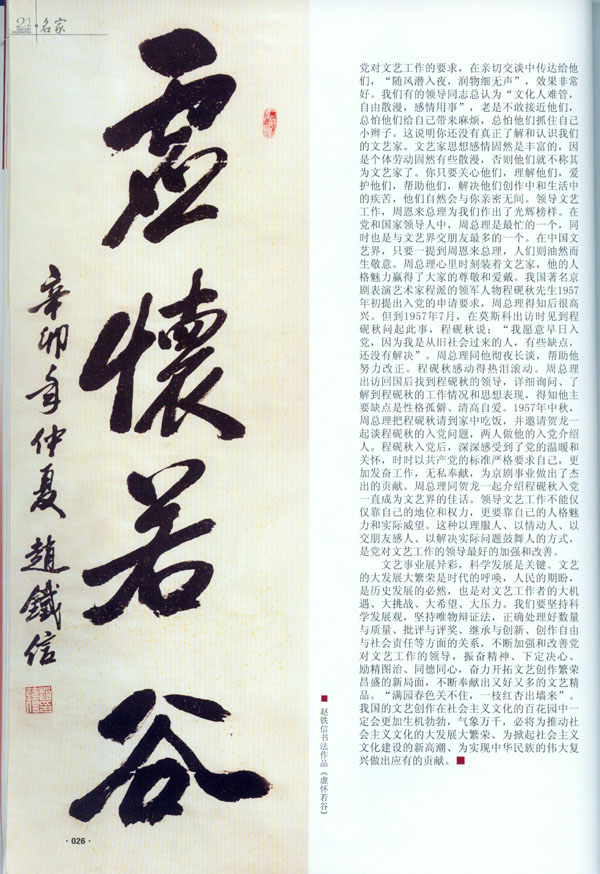 21·名家
虚懷若谷
辛卯年仲夏趙鐵信
党对文艺工作的要求,在亲切交谈中传达给他
们,“随风潜入夜,润物细无声”,效果非常
好。我们有的领导同志总认为“文化人难管,
自由散漫,感情用事”,老是不敢接近他们,
总怕他们给自己带来麻烦,总怕他们抓住自己
小辫子。这说明你还没有真正了解和认识我们
的文艺家。文艺家思想感情固然是丰富的,因
是个体劳动固然有些散漫,否则他们就不称其
为文艺家了。你只要关心他们,理解他们,爱
护他们,帮助他们,解决他们创作中和生活中
的疾苦,他们自然会与你亲密无间。领导文艺
工作,周恩来总理为我们作出了光辉榜样。在
党和国家领导人中,周总理是最忙的一个,同
时也是与文艺界交朋友最多的一个。在中国文
艺界,只要一提到周恩来总理,人们则油然而
生敬意。周总理心里时刻装着文艺家,他的人
格魅力赢得了大家的尊敬和爱戴。我国著名京
剧表演艺术家程派的领军人物程砚秋先生1957
年初提出入党的申请要求,周总理得知后很高
兴。但到1957年7月,在莫斯科出访时见到程
砚秋问起此事,程砚秋说:“我愿意早日入
党,因为我是从旧社会过来的人,有些缺点,
还没有解决”。周总理同他彻夜长谈,帮助他
努力改正。程砚秋感动得热泪滚动。周总理
出访回国后找到程砚秋的领导,详细询问、了
解到程砚秋的工作情况和思想表现,得知他主
要缺点是性格孤僻、清高自爱。1957年中秋,
周总理把程砚秋请到家中吃饭,并邀请贺龙一
起谈程砚秋的入党问题,两人做他的入党介绍
人。程砚秋入党后,深深感受到了党的温暖和
关怀,时时以共产党的标准严格要求自己,更
加发奋工作,无私奉献,为京剧事业做出了杰
出的贡献。周总理同贺龙一起介绍程砚秋入党
一直成为文艺界的佳话。领导文艺工作不能仅
仅靠自己的地位和权力,更要靠自己的人格魅
力和实际威望。这种以理服人、以情动人、以
交朋友感人、以解决实际问题鼓舞人的方式,
是党对文艺工作的领导最好的加强和改善。
文艺事业展异彩,科学发展是关键。文艺
的大发展大繁荣是时代的呼唤,人民的期盼,
是历史发展的必然,也是对文艺工作者的大机
遇、大挑战、大希望、大压力。我们要坚持科
学发展观,坚持唯物辩证法,正确处理好数量
与质量、批评与评奖、继承与创新、创作自由
与社会责任等方面的关系,不断加强和改善党
对文艺工作的领导,振奋精神、下定决心、
励精图治、同德同心,奋力开拓文艺创作繁荣
昌盛的新局面,不断奉献出又好又多的文艺精
品。“满园春色关不住,一枝红杏出墙来”。
我国的文艺创作在社会主义文化的百花园中一
定会更加生机勃勃,气象万千,必将为推动社
会主义文化的大发展大繁荣、为掀起社会主义
文化建设的新高潮、为实现中华民族的伟大复
兴做出应有的贡献。■
■ 赵铁信书法作品《虚怀若谷》
·026·